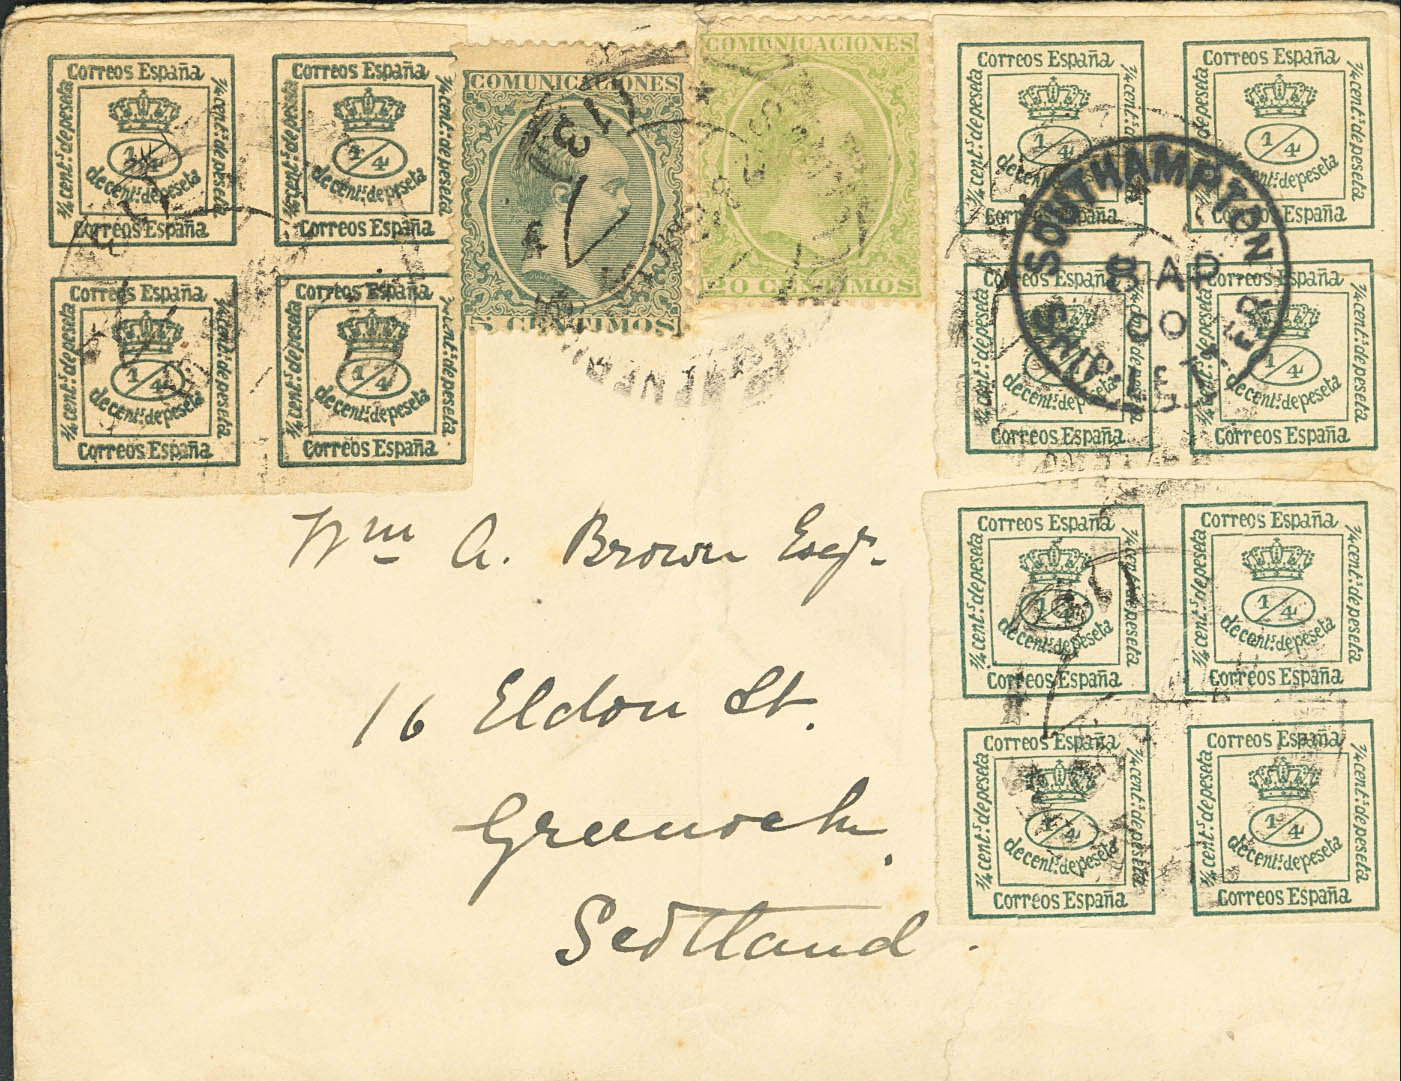 CORREOS ESPAÑA
¼ cent.s de peseta
¼ cent.s de peseta
1/4
de cent.s de peseta
CORREOS ESPAÑA
CORREOS ESPAÑA
¼ cent.s de peseta
¼ cent.s de peseta
1/4
de cent.s de peseta
CORREOS ESPAÑA
CORREOS ESPAÑA
¼ cent.s de peseta
¼ cent.s de peseta
1/4
de cent.s de peseta
CORREOS ESPAÑA
CORREOS ESPAÑA
¼ cent.s de peseta
¼ cent.s de peseta
1/4
de cent.s de peseta
CORREOS ESPAÑA
COMUNICACIONES
5 CENTIMOS
COMUNICACIONES
20 CENTIMOS
CORREOS ESPAÑA
¼ cent.s de peseta
¼ cent.s de peseta
1/4
de cent.s de peseta
CORREOS ESPAÑA
CORREOS ESPAÑA
¼ cent.s de peseta
1/4
de cent.s de peseta
CORREOS ESPAÑA
SOUTHAMPTON
8 AP
00
SHIP LETTER
¼ cent.s de peseta
¼ cent.s de peseta
1/4
de cent.s de peseta
CORREOS ESPAÑA
CORREOS ESPAÑA
¼ cent.s de peseta
1/4
de cent.s de peseta
CORREOS ESPAÑA
CORREOS ESPAÑA
¼ cent.s de peseta
¼ cent.s de peseta
1/4
de cent.s de peseta
CORREOS ESPAÑA
CORREOS ESPAÑA
¼ cent.s de peseta
¼ cent.s de peseta
1/4
de cent.s de peseta
CORREOS ESPAÑA
CORREOS ESPAÑA
¼ cent.s de peseta
¼ cent.s de peseta
1/4
de cent.s de peseta
CORREOS ESPAÑA
CORREOS ESPAÑA
¼ cent.s de peseta
¼ cent.s de peseta
1/4
de cent.s de peseta
CORREOS ESPAÑA
Wm A. Brown Esqr.
16 Eldon St.
Greenock,
Scotland.